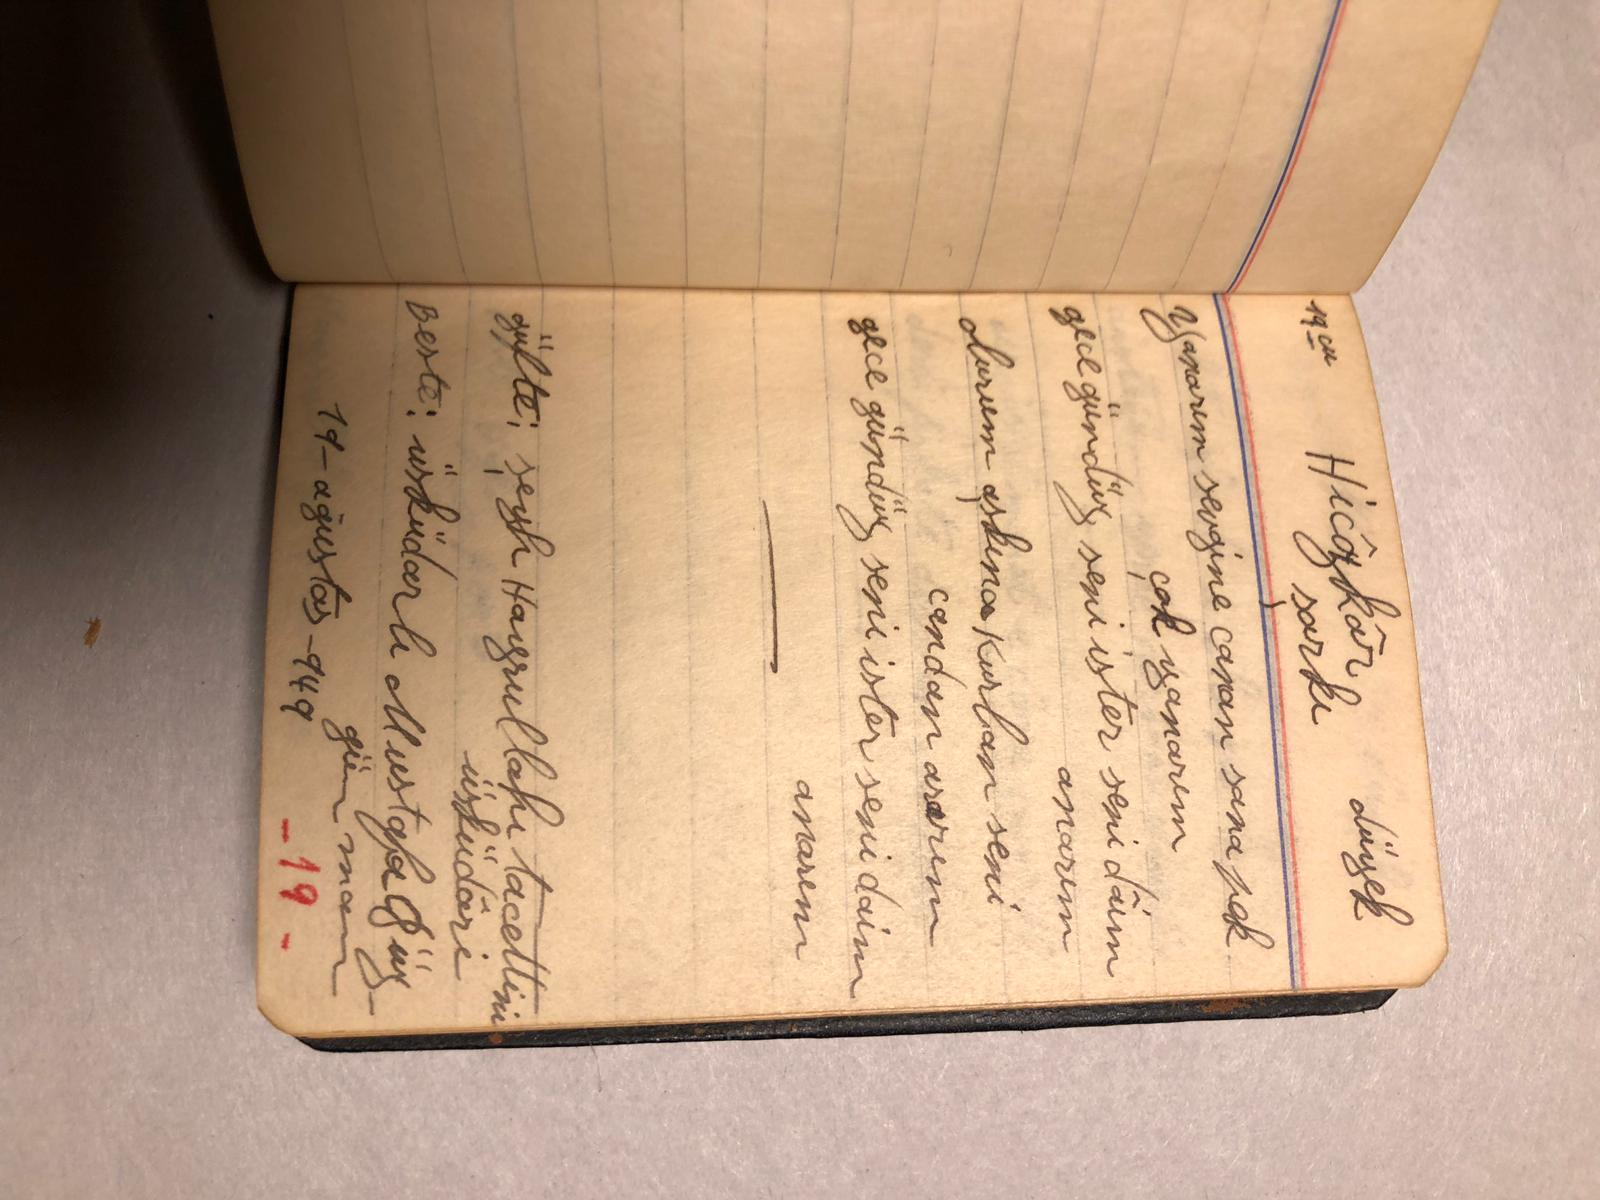 19 cu Hicâzkâr düyek
şarkı
Yanarım sevgine canan sana pek
çok yanarım
gece gündüz seni ister seni dâim
anarım
olurum aşkına kurban seni
candan ararım
gece gündüz seni ister seni daim
anarım
güfte: şeyh Hayrullahi tacettini
üsküdâri
Beste: üsküdarlı Mustafa Güz-
günman
19-ağustos-949
-19-